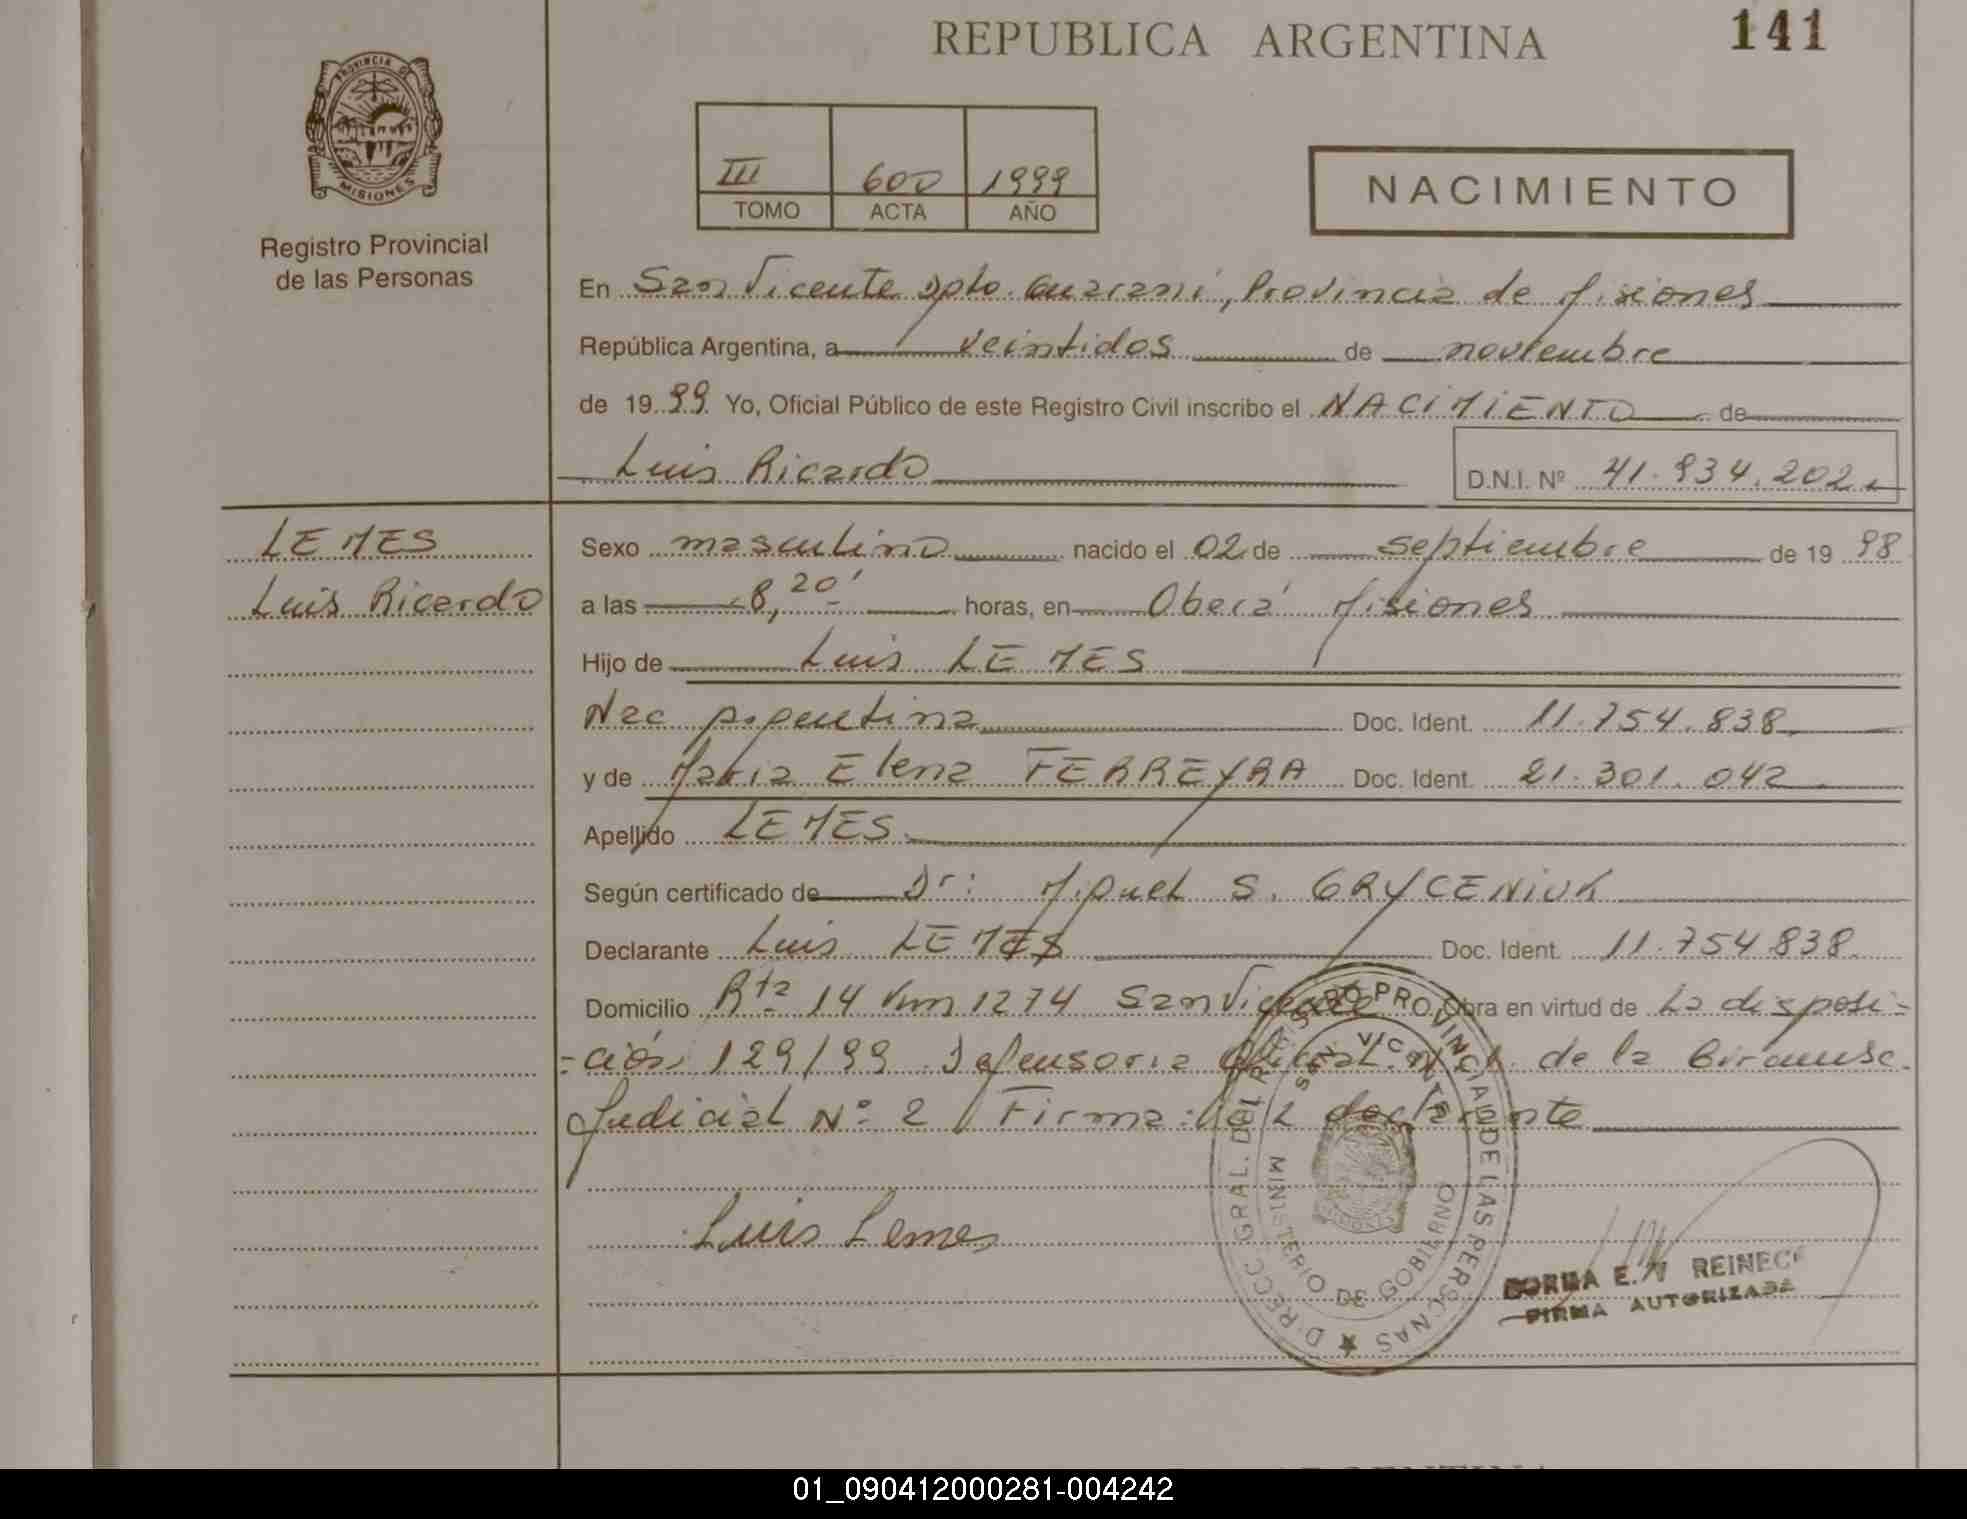 REPUBLICA ARGENTINA
141
PROVINCIA DE
MISIONES
Registro Provincial
de las Personas
III 600 1999
TOMO ACTA AÑO
NACIMIENTO
En San Vicente Dpto. Guaraní, Provincia de Misiones
República Argentina, a veintidos de noviembre
de 1999 Yo, Oficial Público de este Registro Civil inscribo el NACIMIENTO de
Luis Ricardo
D.N.I. Nº 41.934.202
LEMES
Luis Ricardo
Sexo masculino nacido el 02 de septiembre de 1998
a las 8,20' horas, en Oberá Misiones
Hijo de Luis LEMES
Nac Argentina Doc. Ident. 11.754.838
y de Maria Elena FERREYRA Doc. Ident. 21.301.042
Apellido LEMES
Según certificado de Dr: Miguel S. GRYCENIUK
Declarante Luis LEMES Doc. Ident. 11.754.838
Domicilio Rta 14 Km 1274 San Vicente Obra en virtud de La disposi-
-ción 129/99 Defensoria Oficial de la Circunsc.
Judicial Nº 2 Firma: el declarante
Luis Lemes
DIRECC GRAL. DEL REGISTRO PROVINCIAL DE LAS PERSONAS
SAN VICENTE
MINISTERIO DE GOBIERNO
MISIONES
E. REINECK
FIRMA AUTORIZADA
01_090412000281-004242